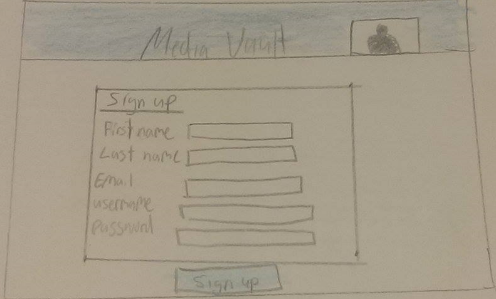 Media Vault
Sign up
First name
Last name
Email
username
Password
Sign up